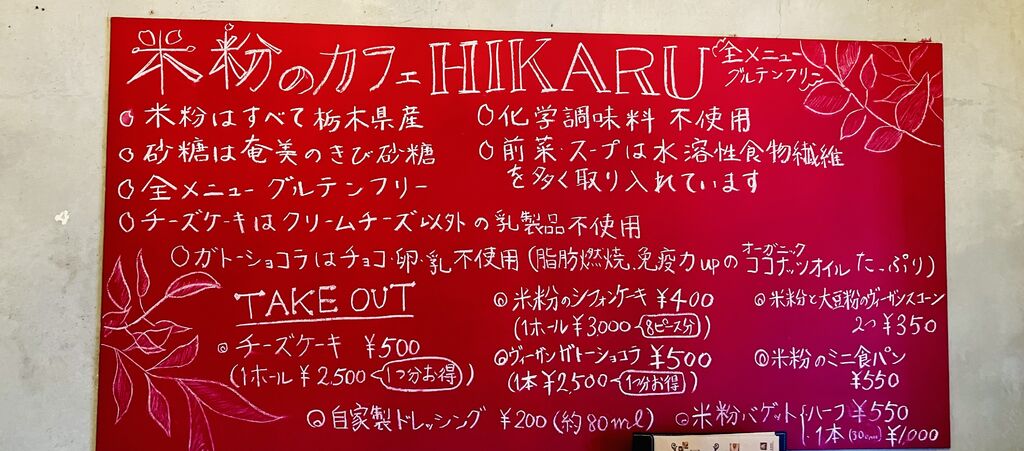 米粉のカフェ HIKARU
全メニュー
グルテンフリー
○米粉はすべて栃木県産
○砂糖は奄美のきび砂糖
○全メニューグルテンフリー
○化学調味料 不使用
○前菜・スープは水溶性食物繊維
を多く取り入れています
○チーズケーキはクリームチーズ以外の乳製品不使用
○ガトーショコラはチョコ・卵・乳不使用(脂肪燃焼、免疫力upのオーガニックココナッツオイルたっぷり)
TAKE OUT
◎チーズケーキ ¥500
(1ホール ¥2,500 1つ分お得)
◎米粉のシフォンケーキ ¥400
(1ホール ¥3000 8ピース分)
◎ヴィーガンガトーショコラ ¥500
(1本 ¥2,500 1つ分お得)
◎米粉と大豆粉のヴィーガンスコーン
2つ ¥350
◎米粉のミニ食パン
¥550
◎自家製ドレッシング ¥200(約80ml)
◎米粉バゲット ハーフ ¥550
・1本(30cm) ¥1,000